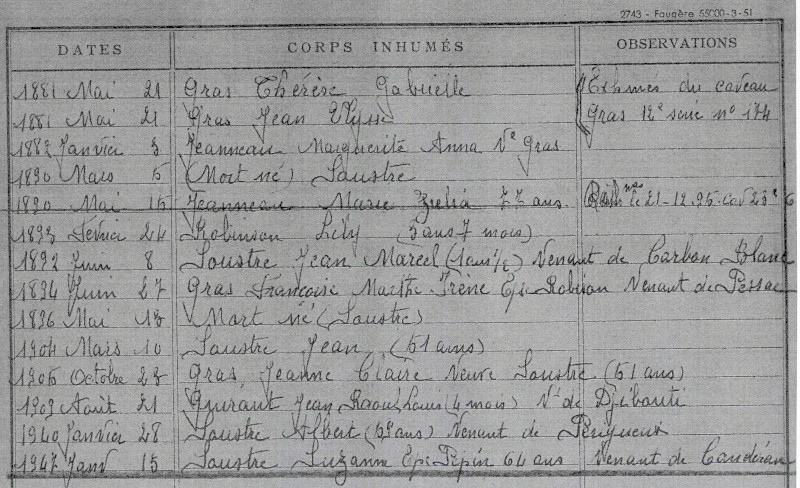 2743 - Faugère 55000-3-51
DATES CORPS INHUMÉS OBSERVATIONS
1881 Mai 21 Gras Thérèse Gabrielle Exhumés du caveau
1881 Mai 21 Gras Jean Ulysse Gras 12e série no 174
1882 Janvier 3 Jeanneau Marguerite Anna Ve Gras
1890 Mars 5 (Mort né) Soustre
1890 Mai 15 Jeanneau Marie Zélia 77 ans. le 21-12-95
1893 Février 24 Robinson Lily (3 ans 7 mois)
1892 Juin 8 Soustre Jean Marcel Venant de Carbon Blanc
1894 Juin 27 Gras Françoise Marthe Irène Ep. Robinson Venant de Pessac
1896 Mai 13 Mort né (Soustre)
1904 Mars 10 Soustre Jean (61 ans)
1906 Octobre 23 Gras Jeanne Claire Veuve Soustre (61 ans)
1909 Août 21 Jean Raoul Louis (4 mois) Vt de Djibouti
1940 Janvier 28 Soustre Albert Venant de Périgueux
1947 Janv 15 Soustre Suzanne Ep. Pépin 64 ans Venant de Caudéran